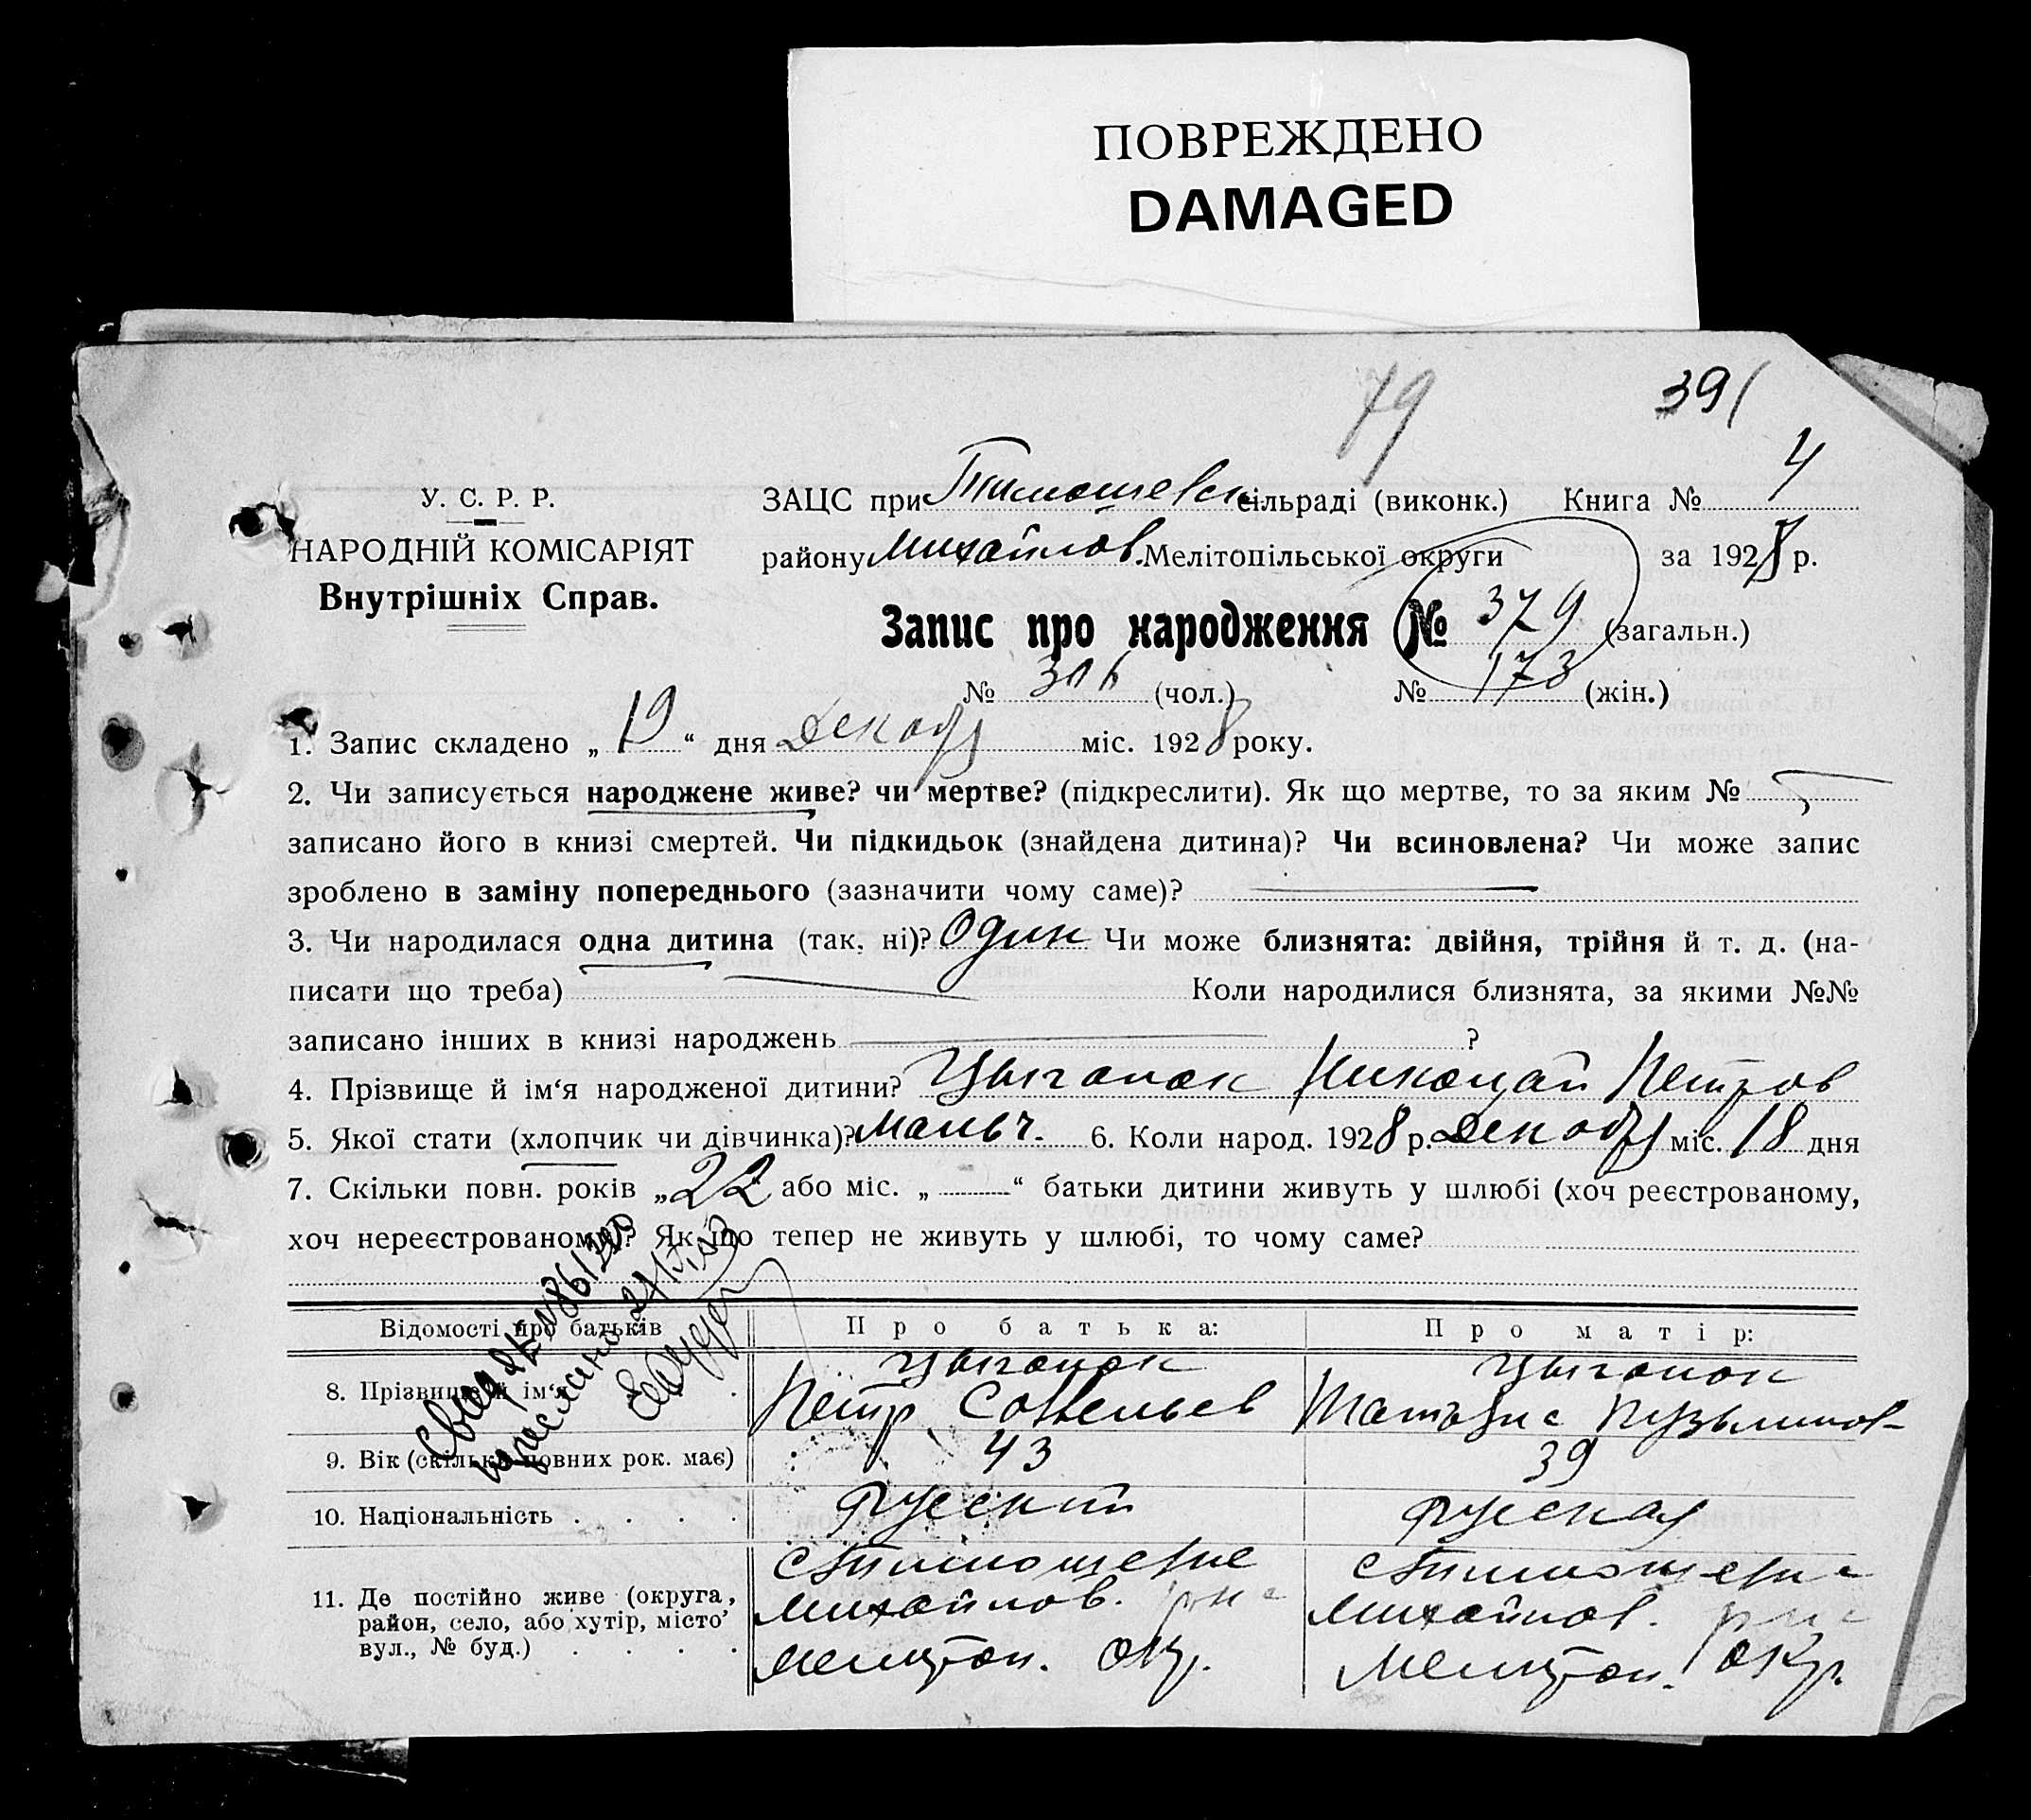 ПОВРЕЖДЕНО
DAMAGED
79
391
У. С. Р. Р.
НАРОДНІЙ КОМІСАРІЯТ
Внутрішніх Справ.
ЗАЦС при Тимошевск. сільраді (виконк.) Книга № 4
району Михайлов. Мелітопільської округи за 1928 р.
Запис про народження № 379 (загальн.)
№ 306 (чол.) № 173 (жін.)
1. Запис складено „19“ дня Декабр міс. 1928 року.
2. Чи записується народжене живе? чи мертве? (підкреслити). Як що мертве, то за яким №
записано його в книзі смертей. Чи підкидьок (знайдена дитина)? Чи всиновлена? Чи може запис
зроблено в заміну попереднього (зазначити чому саме)?
3. Чи народилася одна дитина (так, ні)? Один Чи може близнята: двійня, трійня й т. д. (на-
писати що треба) Коли народилися близнята, за якими №№
записано інших в книзі народжень ?
4. Прізвище й ім‘я народженої дитини? Цыганок Николай Петров
5. Якої стати (хлопчик чи дівчинка)? мальч. 6. Коли народ. 1928 р. Декабр міс. 18 дня
7. Скільки повн. років „22 або міс. „ “ батьки дитини живуть у шлюбі (хоч реєстрованому,
хоч нереєстрованому)? Як що тепер не живуть у шлюбі, то чому саме?
Відомості про батьків Про батька: Про матір:
8. Прізвище й ім‘я Цыганок Цыганок
Петр Савельев Татьяна Кузьминов-
9. Вік (скільки повних рок. має) 43 39
10. Національність . . . . Русский Русская
11. Де постійно живе (округа, с Тимошевке с Тимошевка
район, село, або хутір, місто, Михайлов. рна Михайлов. рна
вул., № буд.) . . . . Мелитоп. окр. Мелитоп. окр.